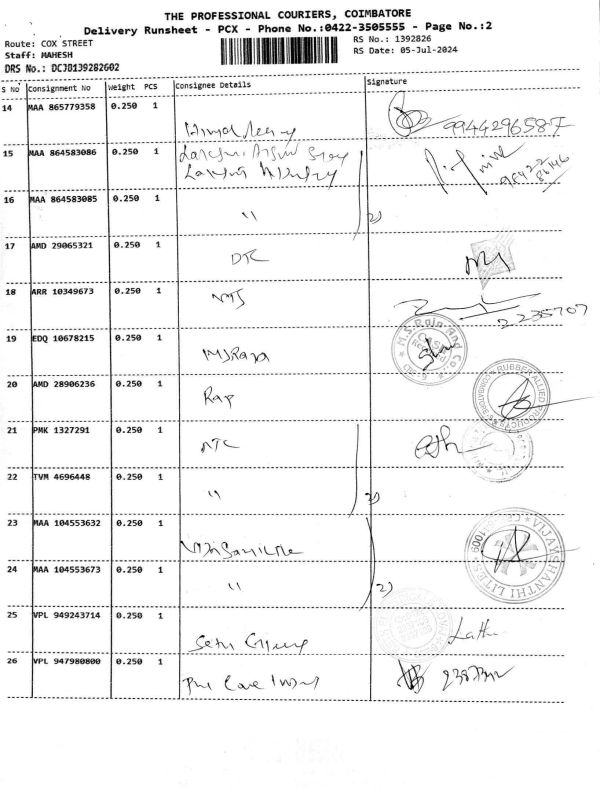 THE PROFESSIONAL COURIERS, COIMBATORE
Delivery Runsheet - PCX - Phone No.:0422-3505555 - Page No.:2
Route: COX STREET
RS No.: 1392826
Staff: MAHESH
RS Date: 05-Jul-2024
DRS No.: DCJB139282602
S No Consignment No Weight PCS Consignee Details Signature
14 MAA 865779358 0.250 1
9944296587
15 MAA 864583086 0.250 1
16 MAA 864583085 0.250 1
" 2)
17 AMD 29065321 0.250 1
DTC
18 ARR 10349673 0.250 1
NTS
2235707
19 EDQ 10678215 0.250 1
MSRaja
M.S.Raja And Co.
20 AMD 28906236 0.250 1
Rap
RUBBER ALLIED PRODUCTS
21 PMK 1327291 0.250 1
NTC
22 TVM 4696448 0.250 1
" 2)
23 MAA 104553632 0.250 1
VIJAYSHANTHI LITES
24 MAA 104553673 0.250 1
" 2)
25 VPL 949243714 0.250 1
26 VPL 947980800 0.250 1